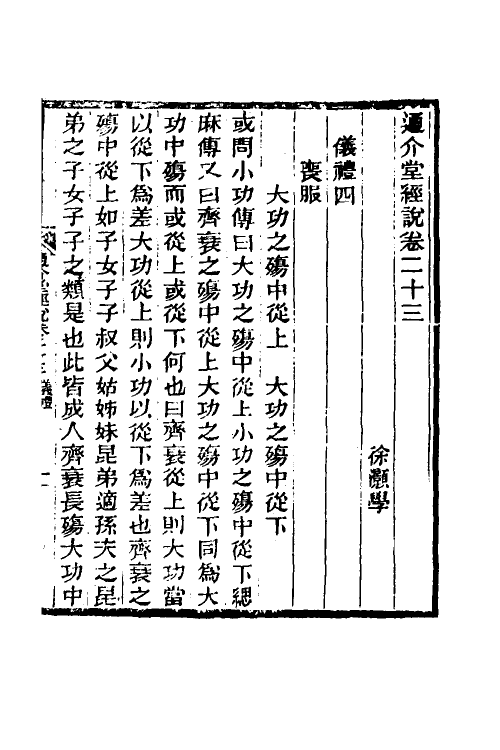 通介堂經說卷二十三
徐灝學
儀禮四
喪服
大功之殤中從上　大功之殤中從下
或問小功傳曰大功之殤中從上小功之殤中從下緦
麻傳又曰齊衰之殤中從上大功之殤中從下同為大
功中殤而或從上或從下何也曰齊衰從上則大功當
以從下為差大功從上則小功以從下為差也齊衰之
殤中從上如子女子子叔父姑姊妹昆弟適孫夫之昆
弟之子女子子之類是也此皆成人齊衰長殤大功中